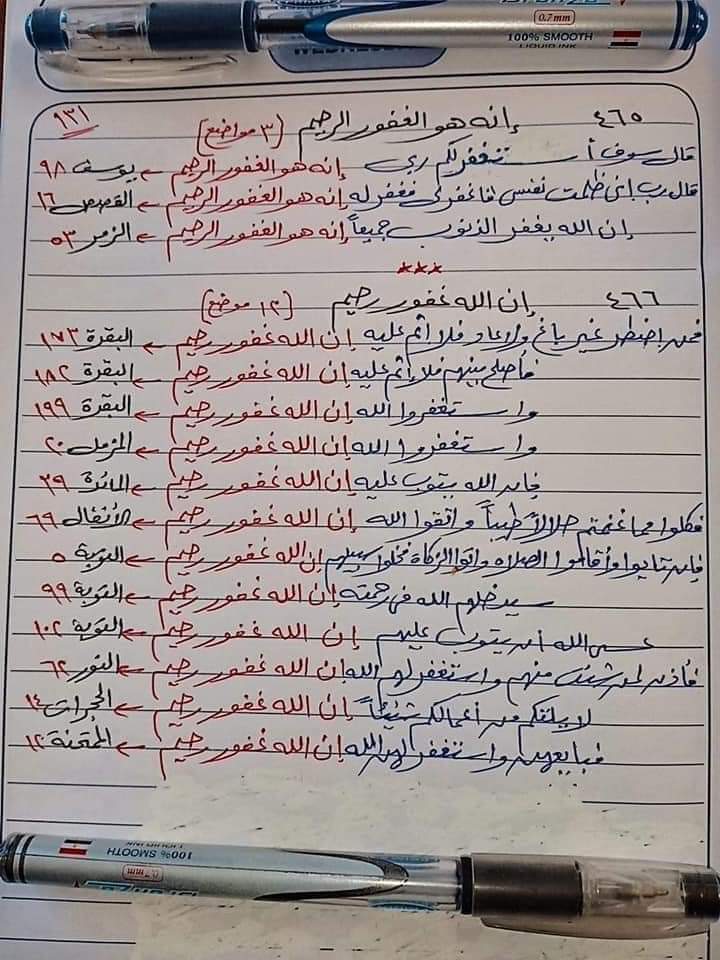 0.7 mm
100% SMOOTH
LIQUID INK
٩٣١
٤٦٥ إنه هو الغفور الرحيم (٣ مواضع)
قال سوف أستغفر لكم ربي إنه هو الغفور الرحيم ← يوسف ٩٨
قال رب إنى ظلمت نفسى فاغفر لى فغفر له إنه هو الغفور الرحيم ← القصص ١٦
إن الله يغفر الذنوب جميعاً إنه هو الغفور الرحيم ← الزمر ٥٣
***
٤٦٦ إن الله غفور رحيم (١٢ موضع)
فمن اضطر غير باغ ولا عاد فلا اثم عليه إن الله غفور رحيم ← البقرة ١٧٣
فأصلح بينهم فلا إثم عليه إن الله غفور رحيم ← البقرة ١٨٢
واستغفروا الله إن الله غفور رحيم ← البقرة ١٩٩
واستغفروا الله إن الله غفور رحيم ← المزمل ٢٠
فإن الله يتوب عليه إن الله غفور رحيم ← المائدة ٣٩
فكلوا مما غنمتم حلالاً طيباً واتقوا الله إن الله غفور رحيم ← الأنفال ٦٩
فإن تابوا وأقاموا الصلاه واتوا الزكاة فخلوا سبيلهم إن الله غفور رحيم ← التوبة ٥
سيدخلهم الله فى رحمته إن الله غفور رحيم ← التوبة ٩٩
عسى الله أن يتوب عليهم إن الله غفور رحيم ← التوبة ١٠٢
فأذن لمن شئت منهم واستغفر لهم الله إن الله غفور رحيم ← النور ٦٢
لا يلتكم من أعمالكم شيئاً إن الله غفور رحيم ← الحجرات ١٤
فبايعهن واستغفر لهن الله إن الله غفور رحيم ← الممتحنة ١٢
100% SMOOTH
LIQUID INK
0.7 mm